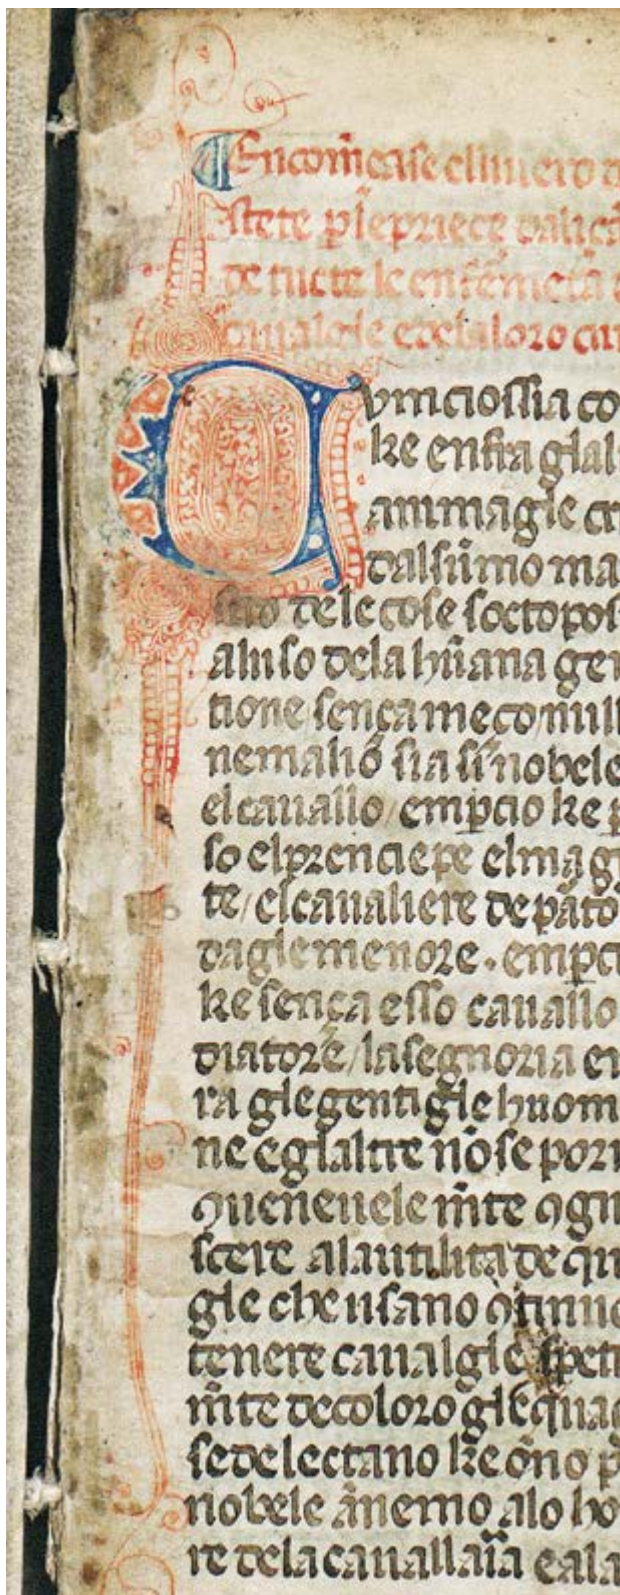 ¶ Encom̄ease elliuero d
de tucte le enfermeta d
caualgle e dela loro cur
Cvmciossia co
ke enfra glal
animagle cr
dal sūmo ma
stro de le cose soctopos
al uso dela hūana gen
tione sença meço null
ne maliō sia sī nobele
el cauallo / emp̄cio ke p
so el prenciepe el mag
te / el caualiere de p̄ato
dagle menore . emp̄ci
ke sença esso cauallo
diatore / la segnoria en
ra gle gentigle huom
ne e glaltre nō se por
ꝯueneuele m̄te ꝯgn
scere a la utilita de qu
gle che usano ꝯtinuo
tenere caualgle speti
m̄te de coloro gle qua
se delectano ke ōno p
nobele ānemo a lo ho
re dela cauallaīa e ala